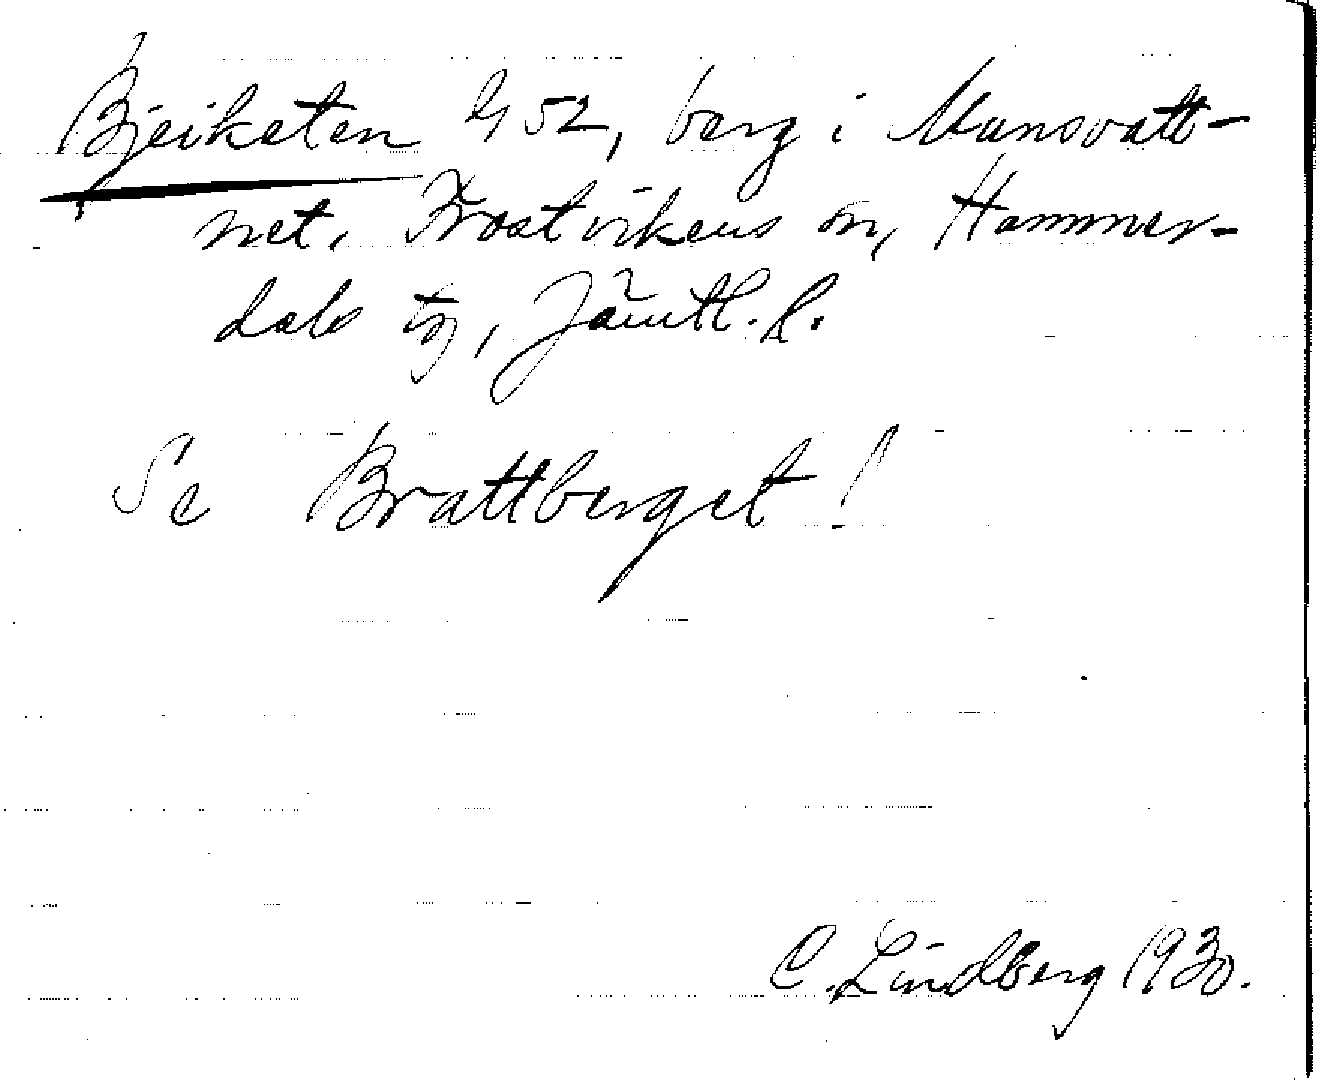 Bjeiketen G 52, berg i Munsvatt-
net, Frostvikens sn, Hammer-
dals tg, Jämtl. l.
Se Brattberget!
C. Lindberg 1930.